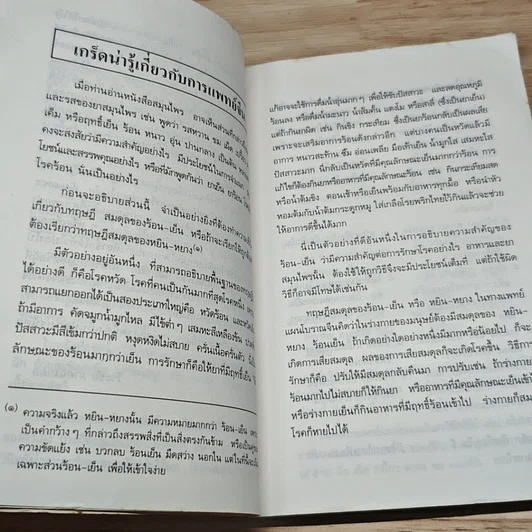 เกร็ดน่ารู้เกี่ยวกับการแพทย์จีน
เมื่อท่านอ่านหนังสือสมุนไพร อาจเห็นส่วนที่กล่าว
และรสของยาสมุนไพร เช่น พูดว่า รสหวาน ขม เผ็ด
เค็ม หรือฤทธิ์เย็น ร้อน หนาว อุ่น ปานกลาง เป็นต้น
คงจะสงสัยว่ามีความสำคัญอย่างไร มีประโยชน์ในการ
โยชน์และสรรพคุณอย่างไร หรือที่มักพูดกันว่า ยาเย็น ยาร้อน
โรคร้อน นั้นเป็นอย่างไร
ก่อนจะอธิบายส่วนนี้ จำเป็นอย่างยิ่งที่ต้องทำความ
เกี่ยวกับทฤษฎี สมดุลของร้อน-เย็น หรือถ้าจะเรียกให้ถูก
ต้องเรียกว่าทฤษฎีสมดุลของหยิน-หยาง(๑)
มีตัวอย่างอยู่อันหนึ่ง ที่สามารถอธิบายพื้นฐานของ
ได้อย่างดี ก็คือโรคหวัด โรคที่คนเป็นกันมากที่สุดโรคหนึ่ง
สามารถแยกออกได้เป็นสองประเภทใหญ่คือ หวัดร้อน และหวัด
ถ้ามีอาการ คัดจมูกน้ำมูกไหล มีไข้ต่ำๆ เสมหะสีเหลืองข้น
ปัสสาวะมีสีเข้มกว่าปกติ หงุดหงิดไม่สบาย ครั่นเนื้อครั่นตัว
ลักษณะของร้อนมากกว่าเย็น การรักษาก็คือให้ยาที่มีฤทธิ์เย็น
(๑) ความจริงแล้ว หยิน-หยางนั้น มีความหมายมากกว่า ร้อน-เย็น
เป็นคำกว้างๆ ที่กล่าวถึงสรรพสิ่งที่เป็นสิ่งตรงกันข้าม หรือเป็นคู่
ความขัดแย้ง เช่น บวกลบ ร้อนเย็น มืดสว่าง นอกใน แต่ในที่นี้จะ
เฉพาะส่วนร้อน-เย็น เพื่อให้เข้าใจง่าย
แก้อาจจะใช้การดื่มน้ำอุ่นมากๆ เพื่อให้ขับปัสสาวะ และลดอุณหภูมิ
ร้อนลง หรือดื่มน้ำมะนาว น้ำส้มคั้น แตงโม หรือสาลี่ (ซึ่งเป็นยาเย็น)
แต่ถ้ากินยาผิด เช่น กินขิง กระเทียม (ซึ่งเป็นยาร้อนกลับเป็นผลเสีย
เพราะจะเสริมอาการร้อนดังกล่าวอีก แต่บางคนเป็นหวัดแล้วมี
อาการ หนาวสะท้าน ซึม อ่อนเพลีย มือเท้าเย็น น้ำมูกใส เสมหะใส
ปัสสาวะมาก นี่กลับเป็นหวัดที่มีคุณลักษณะเย็นมากกว่าร้อน การ
แก้ไขก็ต้องกินยาหรืออาหารที่มีคุณลักษณะร้อน เช่น กินกระเทียมสด
หรือน้ำต้มขิง ตอนเช้าหรือเย็นพร้อมกับอาหารทุกมื้อ หรือนำหัว
หอมต้มกับน้ำต้มกระดูกหมู ใส่เกลือโรยพริกไทยไว้กินแล้วจะช่วย
ให้อาการดีขึ้นได้มาก
นี่เป็นตัวอย่างที่ดีอันหนึ่งในการอธิบายความสำคัญของ
ร้อน-เย็น ว่ามีความสำคัญต่อการรักษาโรคอย่างไร อาหารและยา
สมุนไพรนั้น ต้องใช้ให้ถูกวิธีจึงจะมีประโยชน์เต็มที่ แต่ถ้าใช้ผิด
วิธีก็อาจมีโทษได้เช่นกัน
ทฤษฎีสมดุลของร้อน-เย็น หรือ หยิน-หยาง ในทางแพทย์
แผนโบราณจีนคิดว่าในร่างกายของมนุษย์ต้องมีสมดุลของ หยิน-
หยาง ร้อน-เย็น ถ้าเกิดอย่างใดอย่างหนึ่งมีมากหรือน้อยไป ก็จะ
เกิดการเสียสมดุล ผลของการเสียสมดุลก็จะเกิดโรคขึ้น วิธีการ
รักษาก็คือ ปรับให้มีสมดุลกลับคืนมา การปรับเช่น ถ้าร่างกาย
ร้อนมากไปไม่สบายก็ให้กินยา หรืออาหารที่มีคุณลักษณะเย็นเข้าไป
หรือร่างกายเย็นก็กินอาหารที่มีฤทธิ์ร้อนเข้าไป ร่างกายก็สมดุล
โรคก็หายไปได้